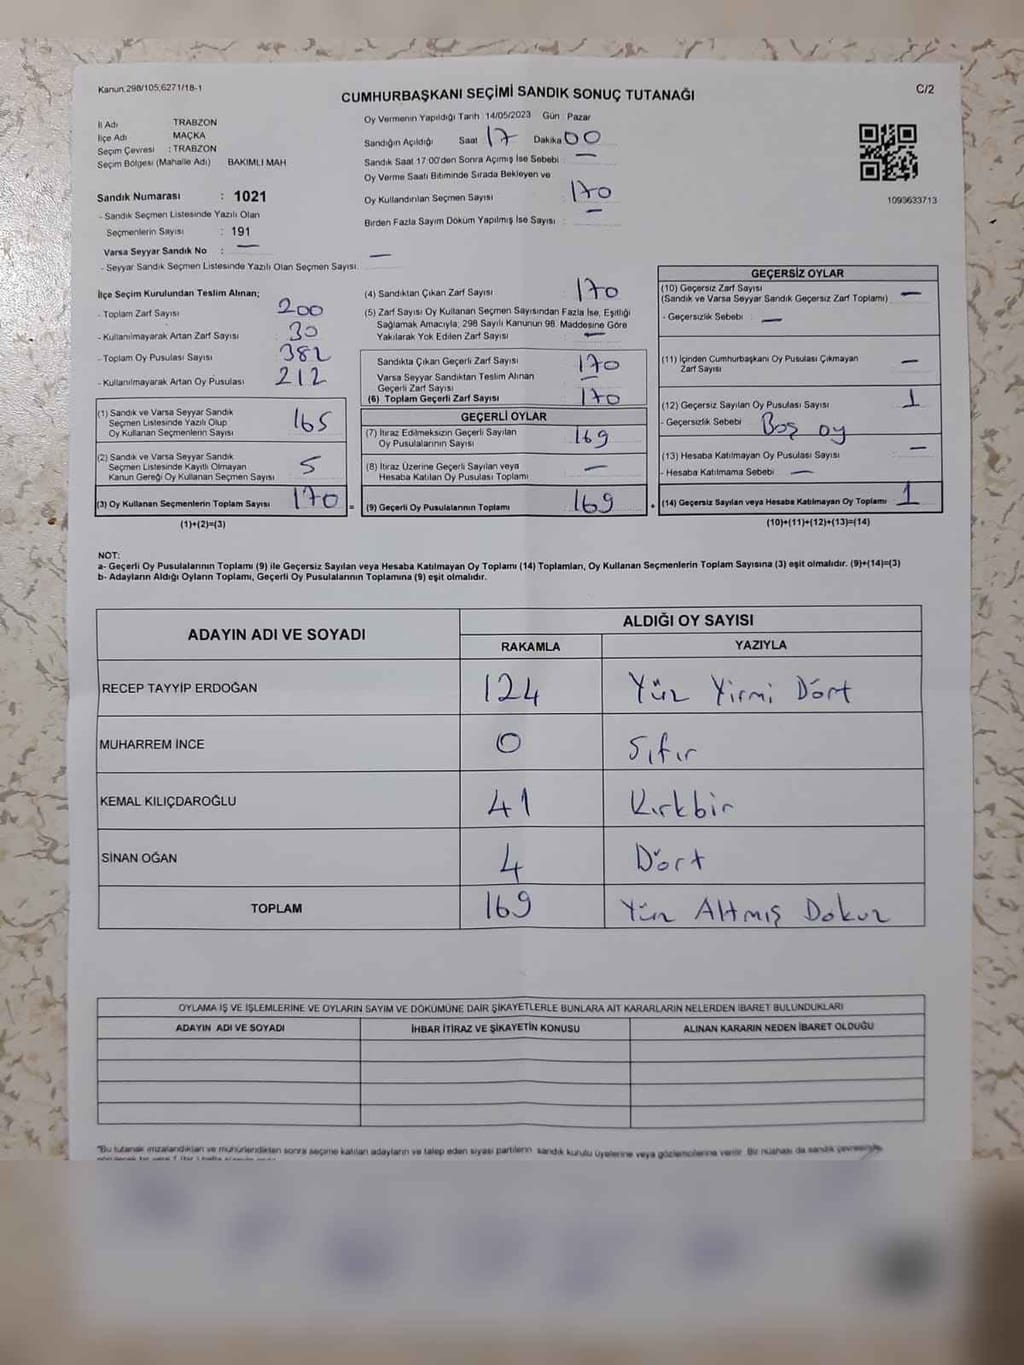 Kanun:298/105,6271/18-1
C/2
CUMHURBAŞKANI SEÇİMİ SANDIK SONUÇ TUTANAĞI
İl Adı TRABZON
İlçe Adı MAÇKA
Seçim Çevresi : TRABZON
Seçim Bölgesi (Mahalle Adı) BAKIMLI MAH
Sandık Numarası : 1021
- Sandık Seçmen Listesinde Yazılı Olan
Seçmenlerin Sayısı : 191
Varsa Seyyar Sandık No : —
- Seyyar Sandık Seçmen Listesinde Yazılı Olan Seçmen Sayısı: —
Oy Vermenin Yapıldığı Tarih 14/05/2023 Gün Pazar
Sandığın Açıldığı Saat 17 Dakika 00
Sandık Saat 17:00'den Sonra Açımış İse Sebebi : —
Oy Verme Saati Bitiminde Sırada Bekleyen ve
Oy Kullandırılan Seçmen Sayısı : 170
Birden Fazla Sayım Döküm Yapılmış İse Sayısı : —
1093633713
İlçe Seçim Kurulundan Teslim Alınan;
- Toplam Zarf Sayısı : 200
- Kullanılmayarak Artan Zarf Sayısı : 30
- Toplam Oy Pusulası Sayısı : 382
- Kullanılmayarak Artan Oy Pusulası : 212
(1) Sandık ve Varsa Seyyar Sandık
Seçmen Listesinde Yazılı Olup
Oy Kullanan Seçmenlerin Sayısı 165
(2) Sandık ve Varsa Seyyar Sandık
Seçmen Listesinde Kayıtlı Olmayan
Kanun Gereği Oy Kullanan Seçmen Sayısı 5
(3) Oy Kullanan Seçmenlerin Toplam Sayısı 170 =
(1)+(2)=(3)
(4) Sandıktan Çıkan Zarf Sayısı : 170
(5) Zarf Sayısı Oy Kullanan Seçmen Sayısından Fazla İse, Eşitliği
Sağlamak Amacıyla; 298 Sayılı Kanunun 98. Maddesine Göre
Yakılarak Yok Edilen Zarf Sayısı : —
Sandıkta Çıkan Geçerli Zarf Sayısı : 170
Varsa Seyyar Sandıktan Teslim Alınan
Geçerli Zarf Sayısı : —
(6) Toplam Geçerli Zarf Sayısı : 170
GEÇERLİ OYLAR
(7) İtiraz Edilmeksizin Geçerli Sayılan
Oy Pusulalarının Sayısı : 169
(8) İtiraz Üzerine Geçerli Sayılan veya
Hesaba Katılan Oy Pusulası Toplamı : —
(9) Geçerli Oy Pusulalarının Toplamı : 169 +
GEÇERSİZ OYLAR
(10) Geçersiz Zarf Sayısı
(Sandık ve Varsa Seyyar Sandık Geçersiz Zarf Toplamı) : —
- Geçersizlik Sebebi : —
(11) İçinden Cumhurbaşkanı Oy Pusulası Çıkmayan
Zarf Sayısı : —
(12) Geçersiz Sayılan Oy Pusulası Sayısı : 1
- Geçersizlik Sebebi Boş oy
(13) Hesaba Katılmayan Oy Pusulası Sayısı : —
- Hesaba Katılmama Sebebi : —
(14) Geçersiz Sayılan veya Hesaba Katılmayan Oy Toplamı : 1
(10)+(11)+(12)+(13)=(14)
NOT:
a- Geçerli Oy Pusulalarının Toplamı (9) ile Geçersiz Sayılan veya Hesaba Katılmayan Oy Toplamı (14) Toplamları, Oy Kullanan Seçmenlerin Toplam Sayısına (3) eşit olmalıdır. (9)+(14)=(3)
b- Adayların Aldığı Oyların Toplamı, Geçerli Oy Pusulalarının Toplamına (9) eşit olmalıdır.
ADAYIN ADI VE SOYADI ALDIĞI OY SAYISI
RAKAMLA YAZIYLA
RECEP TAYYİP ERDOĞAN 124 Yüz Yirmi Dört
MUHARREM İNCE 0 Sıfır
KEMAL KILIÇDAROĞLU 41 Kırkbir
SİNAN OĞAN 4 Dört
TOPLAM 169 Yüz Altmış Dokuz
OYLAMA İŞ VE İŞLEMLERİNE VE OYLARIN SAYIM VE DÖKÜMÜNE DAİR ŞİKAYETLERLE BUNLARA AİT KARARLARIN NELERDEN İBARET BULUNDUKLARI
ADAYIN ADI VE SOYADI İHBAR İTİRAZ VE ŞİKAYETİN KONUSU ALINAN KARARIN NEDEN İBARET OLDUĞU
*Bu tutanak imzalandıktan ve mühürlendikten sonra seçime katılan adayların ve talep eden siyasi partilerin sandık kurulu üyelerine veya gözlemcilerine verilir. Bir nüshası da sandık çevresiyle,